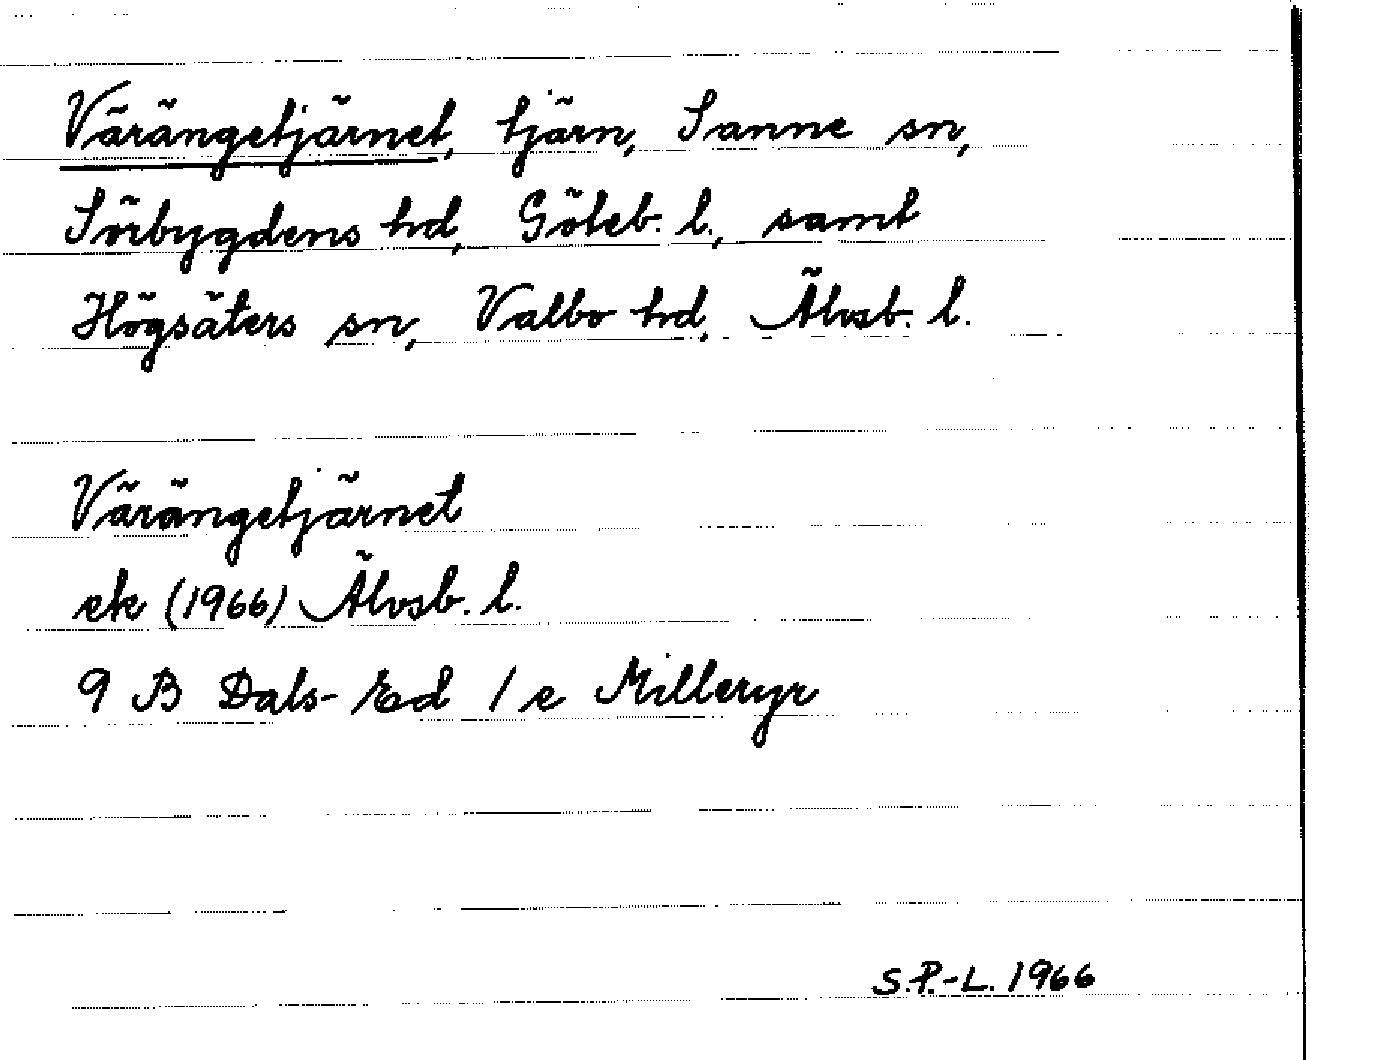 Värängetjärnet, tjärn, Sanne sn,
Sörbygdens hd, Göteb. l., samt
Högsäters sn, Valbo hd, Älvsb. l.
Värängetjärnet
ek (1966) Älvsb. l.
9 B Dals-Ed 1 e Milleryr
S.P.-L. 1966